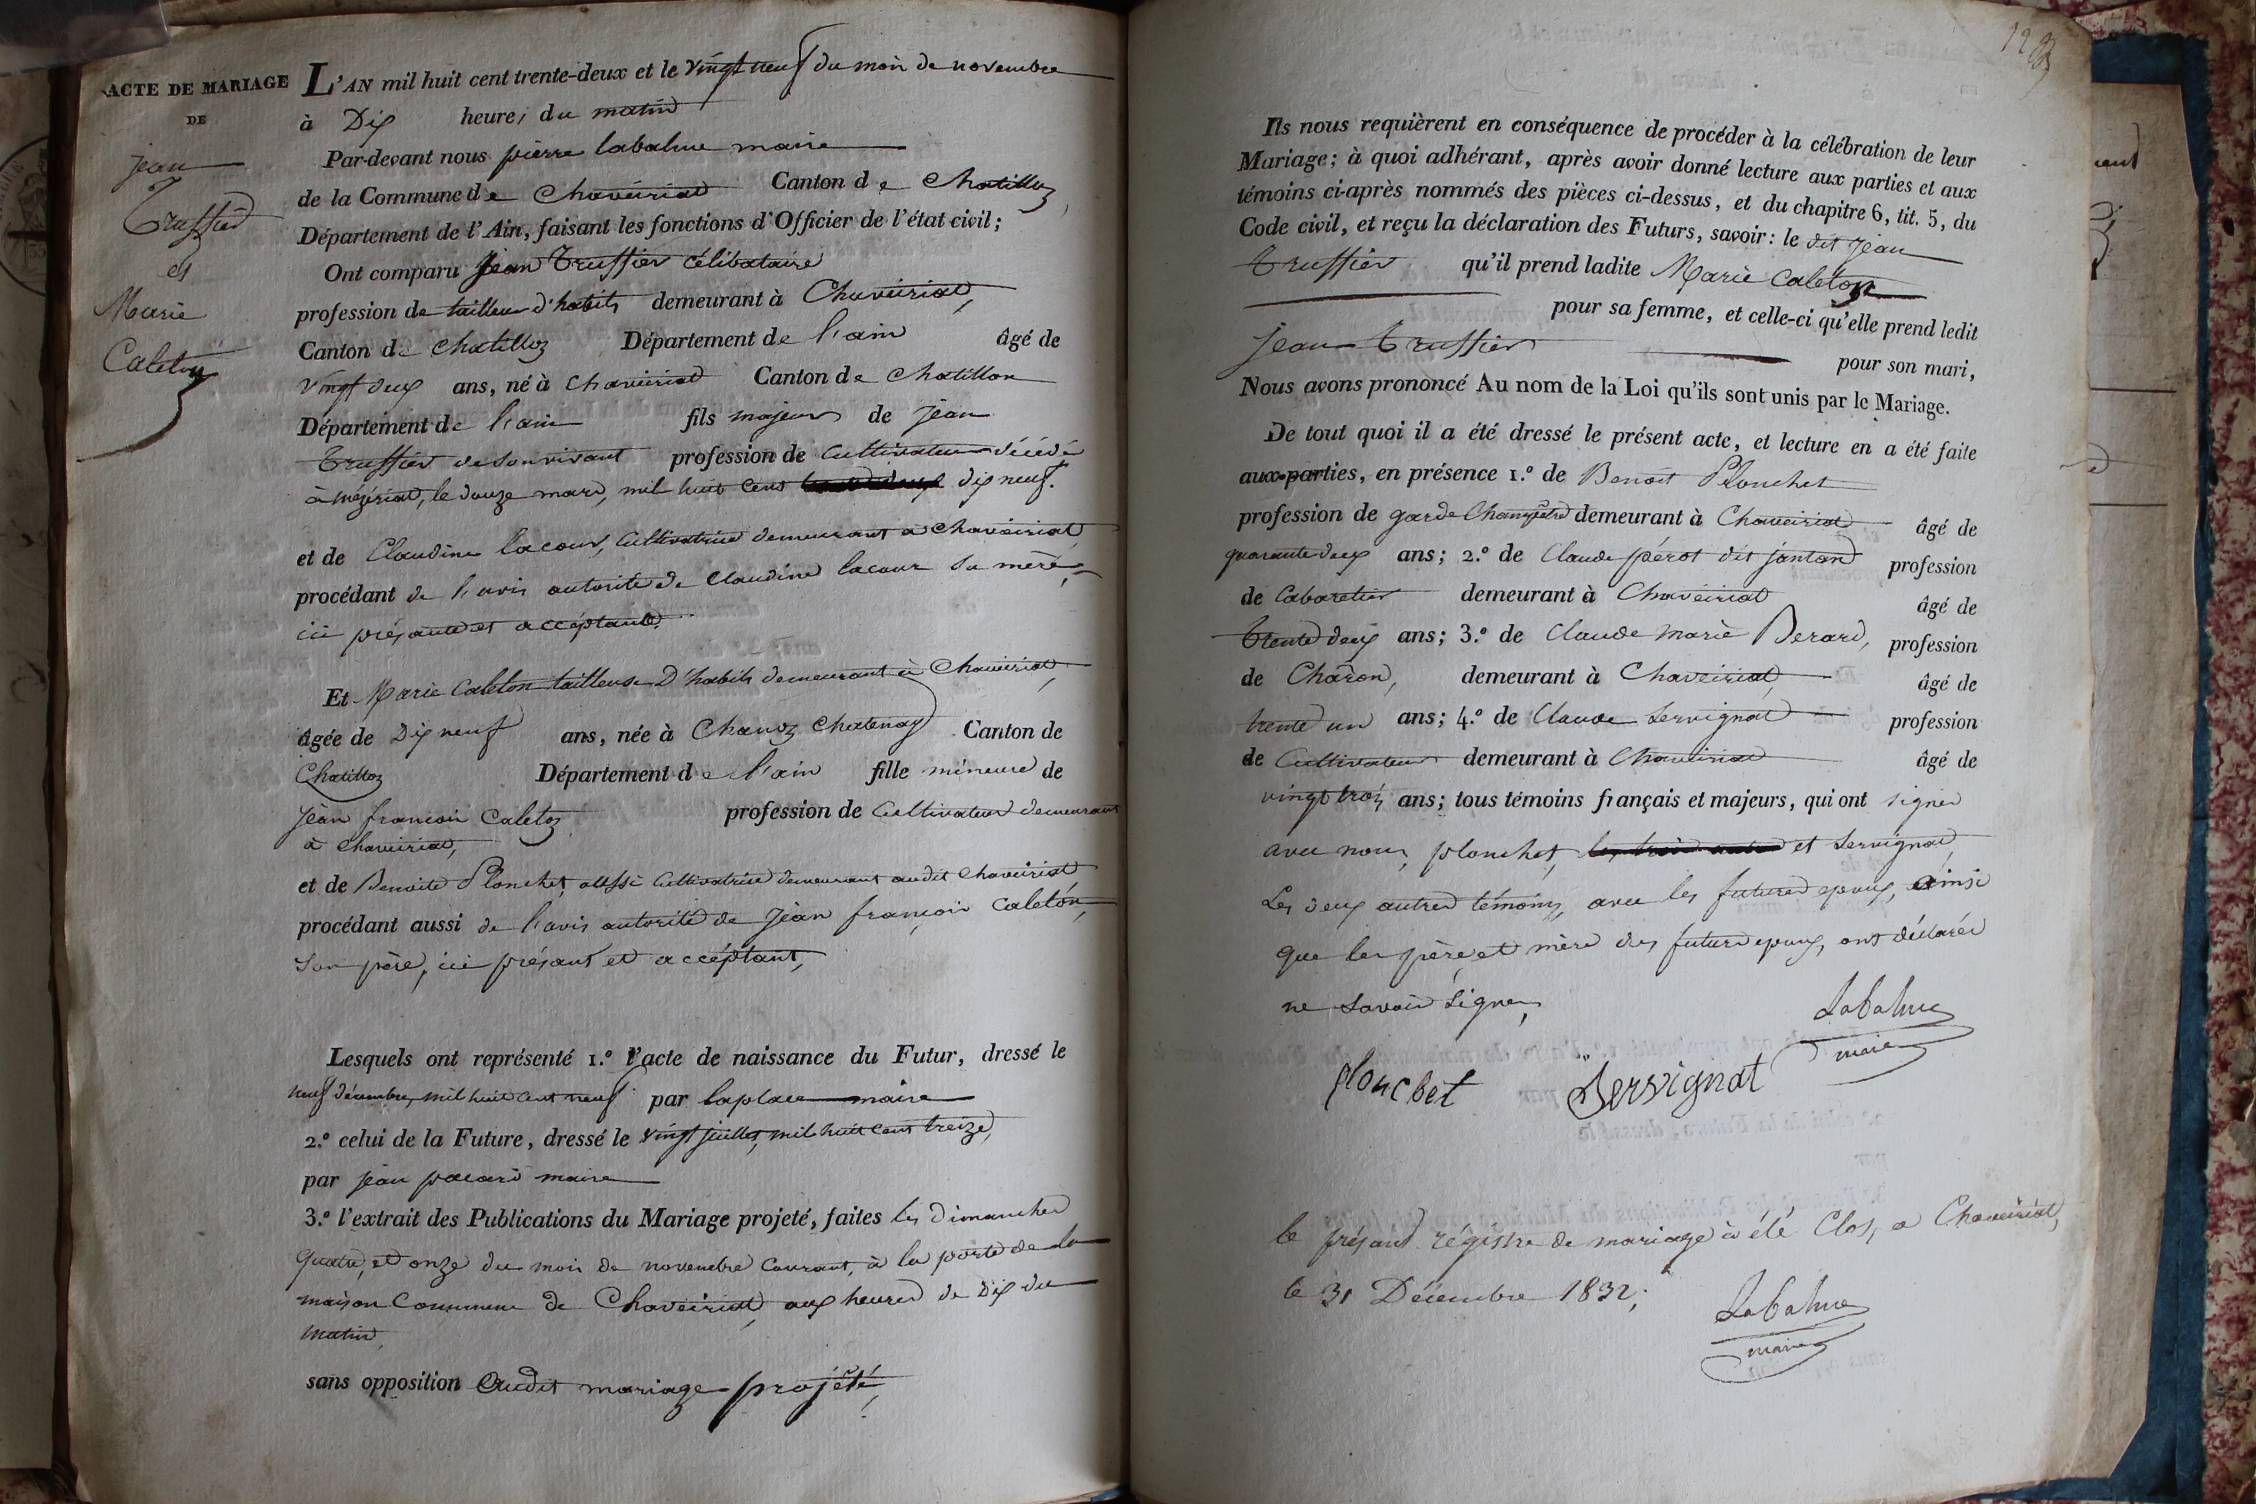 ACTE DE MARIAGE
DE
jean
Truffier
et
Marie
Caleton
L'AN mil huit cent trente-deux et le vingt neuf du mois de novembre
à Dix heures du matin
Par-devant nous pierre labalme maire
de la Commune de Chaveiriat Canton de Chatillon,
Département de l'Ain, faisant les fonctions d'Officier de l'état civil;
Ont comparu Jean Truffier célibataire
profession de tailleur d'habits demeurant à Chaveiriat,
Canton de Chatillon Département de l'ain âgé de
vingt deux ans, né à Chaveiriat Canton de Chatillon
Département de l'ain fils majeur de jean
Truffier de son vivant profession de Cultivateur décédé
à mézériat, le douze mars, mil huit cent dix neuf.
et de Claudine lacour, Cultivatrice demeurant à Chaveiriat
procédant de l'avis autorité de Claudine lacour sa mère,
ici présante et accéptante.
Et Marie Caleton tailleuse D'habits demeurant à Chaveiriat,
âgée de Dix neuf ans, née à Chanoz Chatenay Canton de
Chatillon Département de l'ain fille mineure de
Jean françois Caleton profession de Cultivateur demeurant
à Chaveiriat,
et de Benoite Plonchet, aussi Cultivatrice demeurant audit Chaveiriat
procédant aussi de l'avis autorité de Jean françois Caleton,
son père, ici présant et accéptant,
Lesquels ont représenté 1.º l'acte de naissance du Futur, dressé le
neuf décembre, mil huit cent neuf par laplace maire
2.º celui de la Future, dressé le vingt juillet, mil huit cent treize,
par jean pacard maire
3.º l'extrait des Publications du Mariage projeté, faites les Dimanches
quatre, et onze du mois de novembre Courant, à la porte de la
maison Commune de Chaveiriat, aux heures de Dix du
matin,
sans opposition Audit mariage projété,
Ils nous requièrent en conséquence de procéder à la célébration de leur
Mariage; à quoi adhérant, après avoir donné lecture aux parties et aux
témoins ci-après nommés des pièces ci-dessus, et du chapitre 6, tit. 5, du
Code civil, et reçu la déclaration des Futurs, savoir: le dit Jean
Truffier qu'il prend ladite Marie Caleton
pour sa femme, et celle-ci qu'elle prend ledit
jean Truffier pour son mari,
Nous avons prononcé Au nom de la Loi qu'ils sont unis par le Mariage.
De tout quoi il a été dressé le présent acte, et lecture en a été faite
aux parties, en présence 1.º de Benoit Plonchet
profession de garde Champêtre demeurant à Chaveiriat âgé de
quarante deux ans; 2.º de Claude pérot dit janton profession
de Cabaretier demeurant à Chaveiriat âgé de
trente deux ans; 3.º de Claude marie Berard, profession
de Charon, demeurant à Chaveiriat, âgé de
trente un ans; 4.º de Claude Servignat profession
de Cultivateur demeurant à Chaveiriat âgé de
vingt trois ans; tous témoins français et majeurs, qui ont signés
avec nous, plonchet, et Servignat,
Les deux autres témoins, avec les futures epoux, ainsi
que les père, et mère des futurs epoux, ont déclarés
ne savoir signer,
Labalme
maire
plonchet
Servignat
le présant régistre de mariage à été Clos, a Chaveiriat,
le 31 Décembre 1832;
Labalme
maire